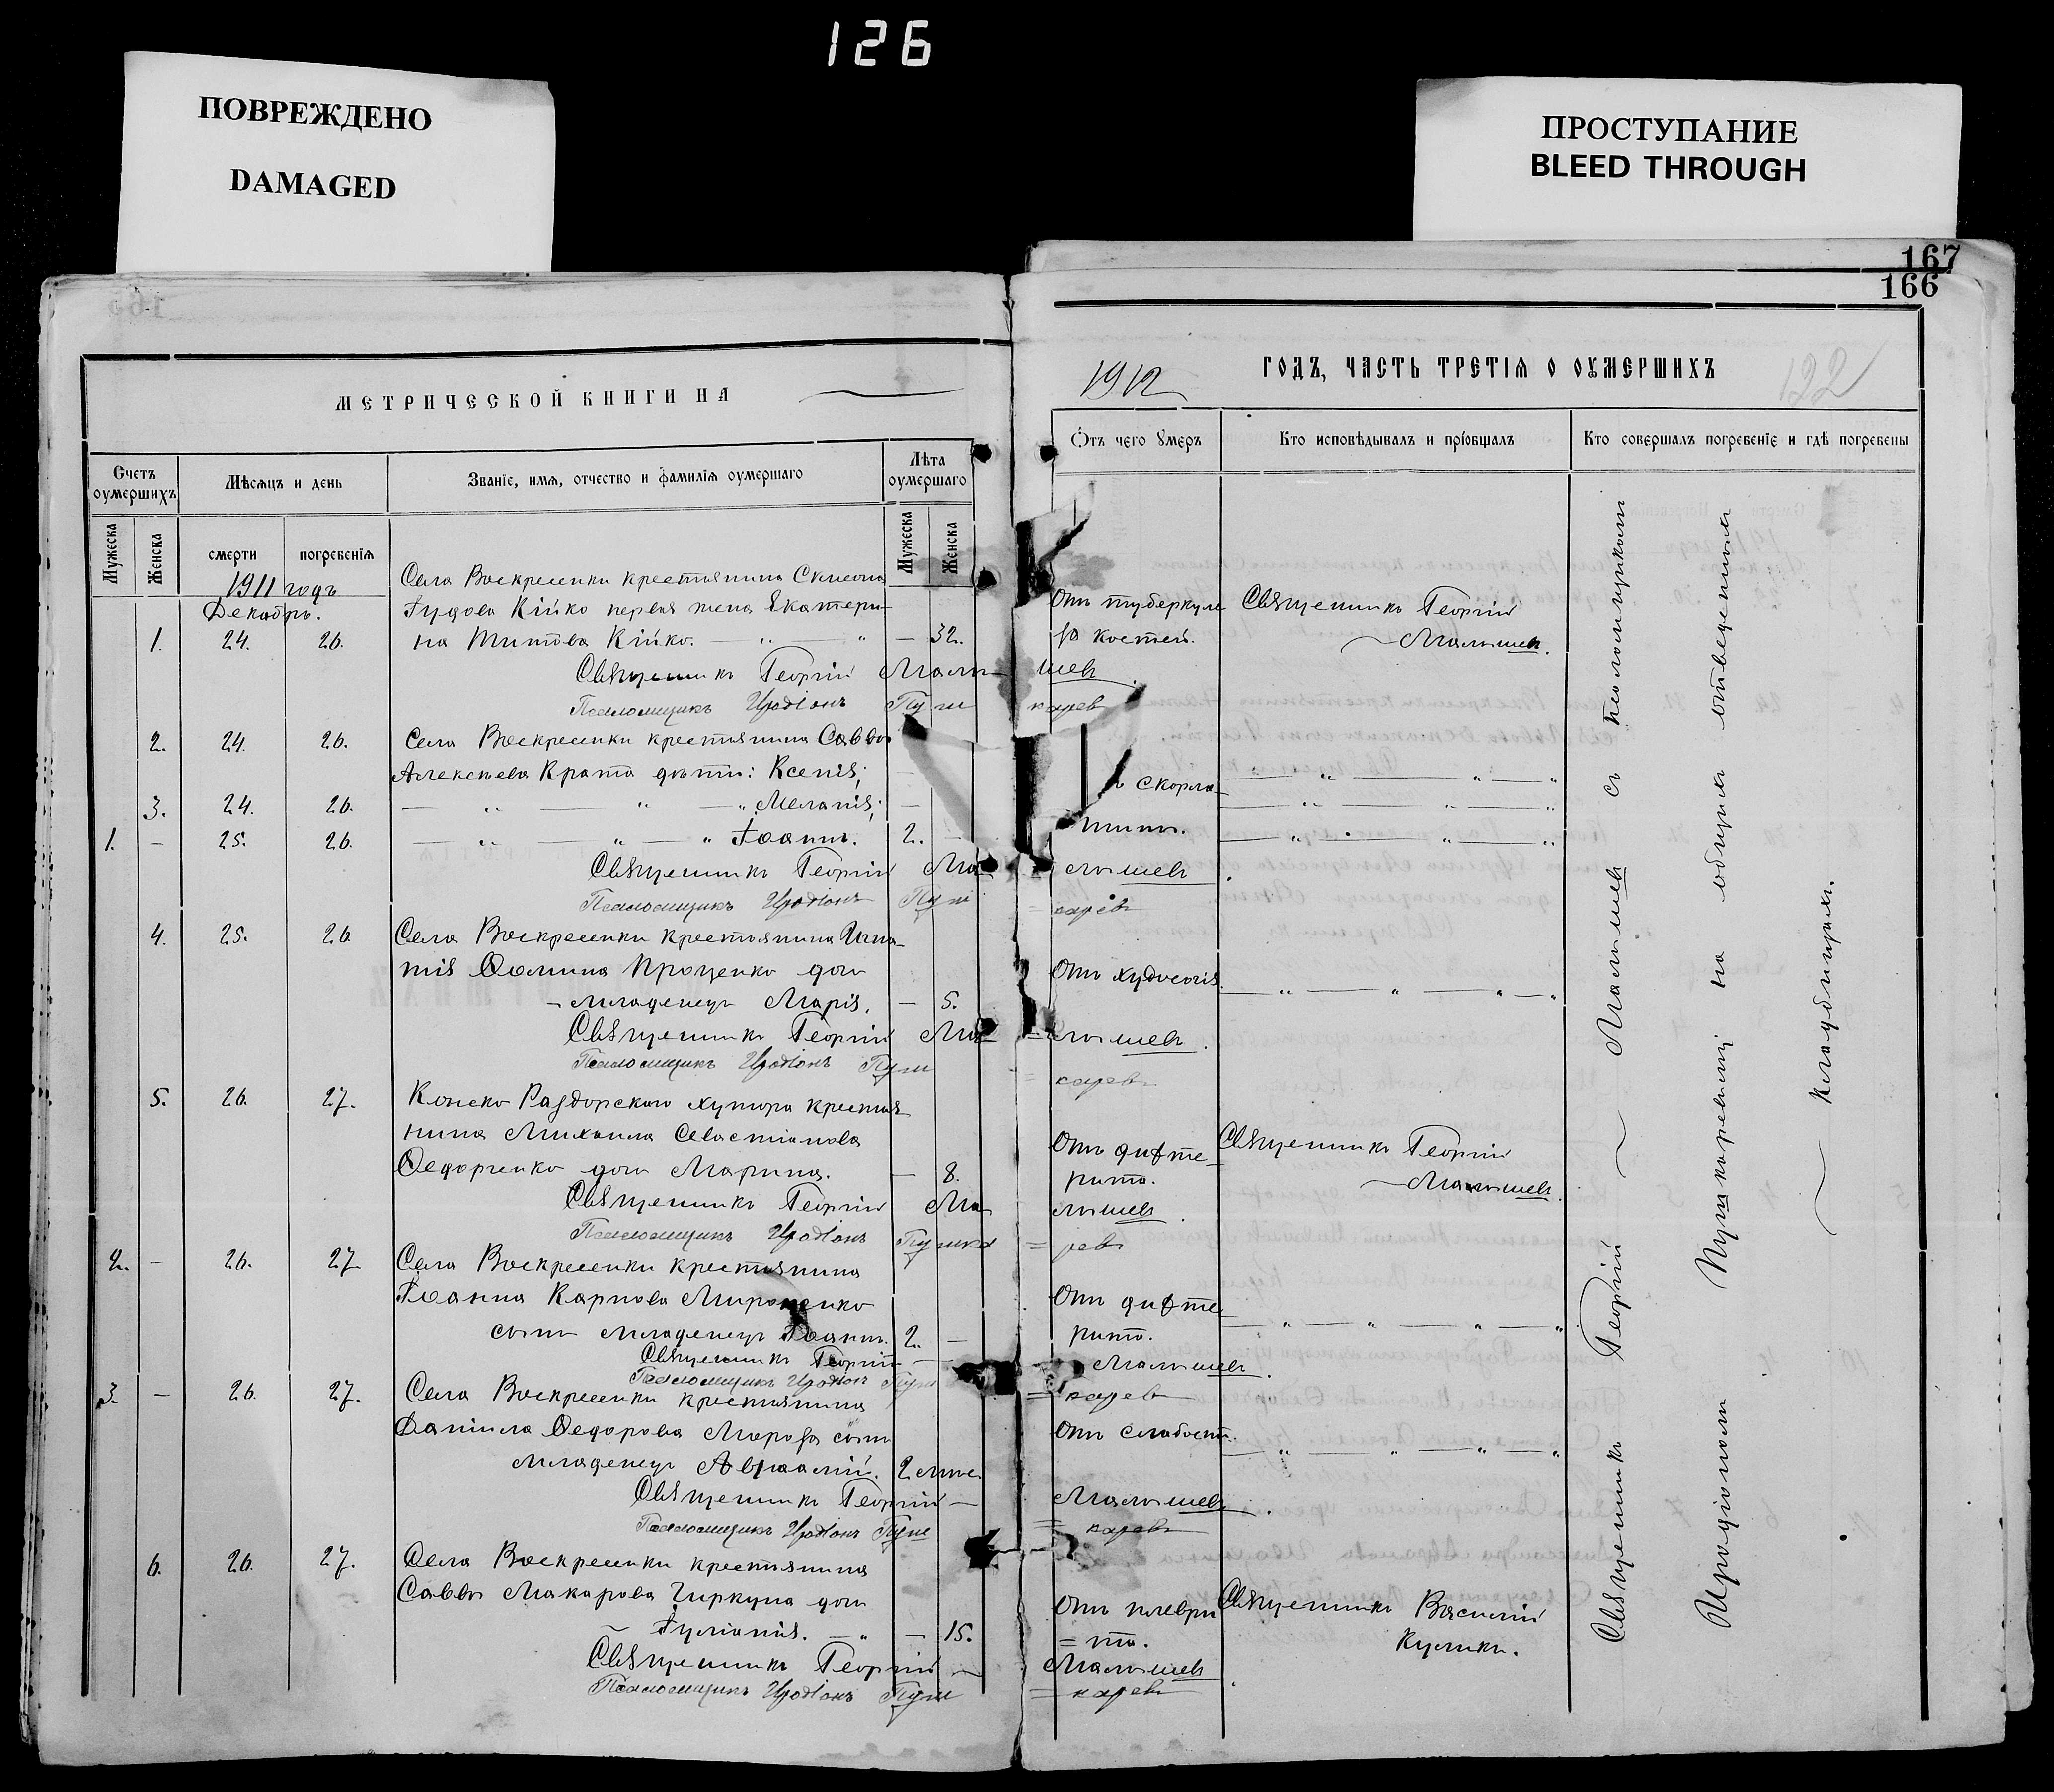 126
ПОВРЕЖДЕНО
DAMAGED
ПРОСТУПАНИЕ
BLEED THROUGH
167
166
МЕТРИЧЕСКОЙ КНИГИ НА
1912 ГОДЪ, ЧАСТЬ ТРЕТІЯ О ОУМЕРШИХЪ
122
Счетъ оумершихъ
Мужеска
Женска
Мѣсяцъ и день
смерти
погребенія
Званіе, имя, отчество и фамилія оумершаго
Лѣта оумершаго
Мужеска
Женска
Отъ чего умеръ
Кто исповѣдывалъ и пріобщалъ
Кто совершалъ погребеніе и гдѣ погребены
1911 годъ
Декабрь.
Села Воскресенки крестьянина Симеона
Іудова Кійко первая жена Екатери-
1. 24. 26. на Титова Кійко. — 32.
Отъ туберкуле
за костей.
Священникъ Георгій
Малышевъ.
Священникъ Георгій Малышевъ.
Псаломщикъ Иродіонъ Пушкаревъ
2. 24. 26. Села Воскресенки крестьянина Саввы
Алексѣева Крата дѣти: Ксенія,
3. 24. 26. — „ — „ — „ Меланія, —
1. — 25. 26. — „ — „ — „ Іоаннъ. 2. —
скарла-
тины.
Священникъ Георгій Малышевъ.
Псаломщикъ Иродіонъ Пушкаревъ
4. 25. 26. Села Воскресенки крестьянина Игна-
тія Ѳомина Проценко дочь
младенецъ Марія. — 5.
Отъ худосочія.
Священникъ Георгій Малышевъ.
Псаломщикъ Иродіонъ Пушкаревъ
5. 26. 27. Конско Раздорскаго хутора крестья
нина Михаила Севастіанова
Ѳедорченко дочь Марина. — 8.
Отъ дифте-
рита.
Священникъ Георгій
Малышевъ.
Священникъ Георгій Малышевъ.
Псаломщикъ Иродіонъ Пушкаревъ
2. — 26. 27. Села Воскресенки крестьянина
Іоанна Карпова Мироненко
сынъ младенецъ Іоаннъ. 2. —
Отъ дифте
рита.
Священникъ Георгій Малышевъ.
Псаломщикъ Иродіонъ Пушкаревъ
3. — 26. 27. Села Воскресенки крестьянина
Даніила Ѳедорова сынъ
младенецъ 2 —
Отъ слабост.
Священникъ Георгій Малышевъ.
Псаломщикъ Иродіонъ Пушкаревъ
6. 26. 27. Села Воскресенки крестьянина
Саввы Макарова Чиркуна дочь
Іуліанія. — 15.
Отъ плеври
та.
Священникъ Василій
Куликъ.
Священникъ Георгій Малышевъ
Псаломщикъ Иродіонъ Пушкаревъ
Священникъ Георгій Малышевъ съ псаломщикомъ
Иродіономъ Пушкаревымъ на общемъ отведенномъ
кладбищѣ.